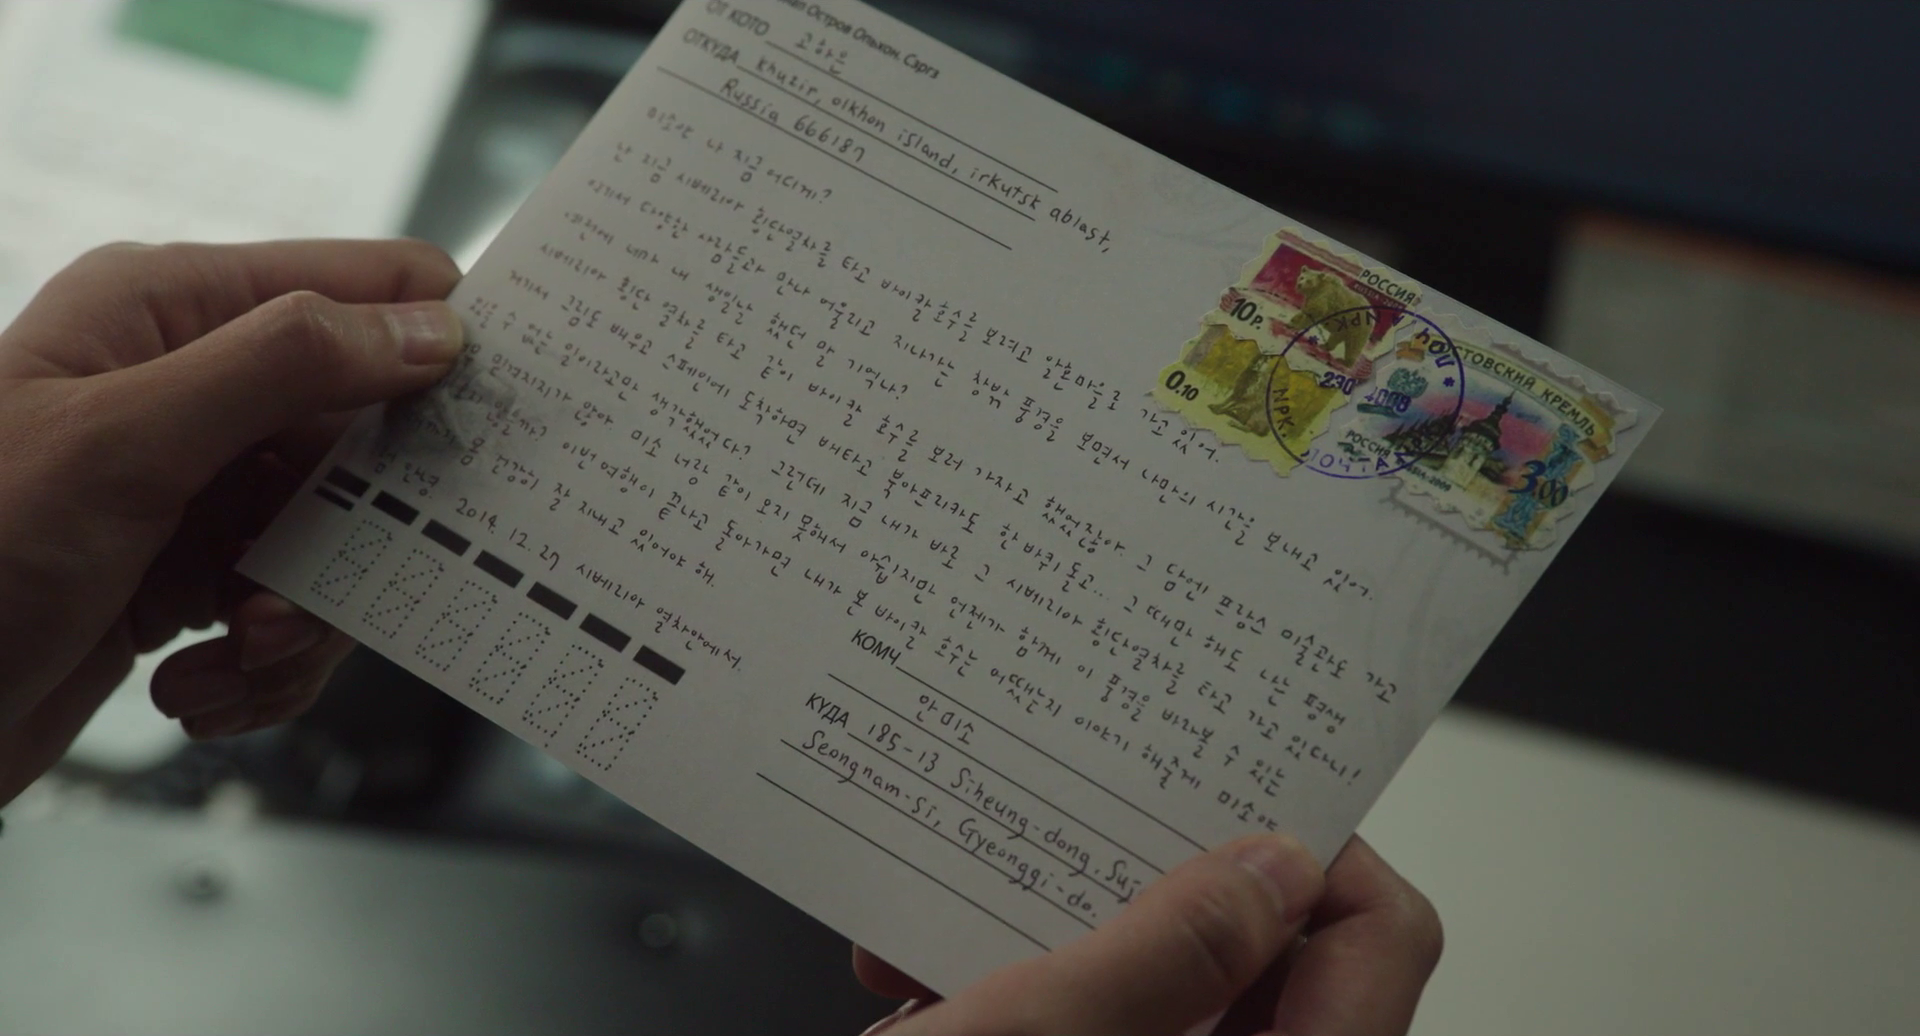 Остров Ольхон. Сэргэ
ОТ КОГО 고하은
ОТКУДА Khuzir, olkhon island, irkutsk ablast,
Russia 666187
미소야 나 지금 어디게?
난 지금 시베리아 횡단열차를 타고 바이칼 호수를 보려고 알혼마을로 가고 있어.
여기서 다양한 사람들과 만나 어울리고 지나가는 창밖 풍경을 보면서 나만의 시간을 보내고 있어.
예전에 네가 내 생일날 했던 말 기억나?
시베리아 횡단 열차를 타고 같이 바이칼 호수를 보러 가자고 했었잖아. 그 담에 프랑스 미술관도 가고
거기서 그림도 배우고 스페인에 도착하면 배타고 북아프리카도 한 바퀴 돌고... 그때만 해도 나는 평생
있을 수 없는 일이라고만 생각했었다? 그런데 지금 내가 바로 그 시베리아 횡단열차를 타고 가고 있다니!
믿겨지지가 않아. 미소 너랑 같이 오지 못해서 아쉽지만 언젠가 함께 이 풍경을 바라볼 수 있는
있을까? 이번 여행이 끝나고 돌아가면 내가 본 바이칼 호수는 어땠는지 이야기 해줄게 미소야
몸 건강히 잘 지내고 있어야 해.
안녕. 2014. 12. 27 시베리아 열차안에서.
РОССИЯ
10р.
0.10
РОСТОВСКИЙ КРЕМЛЬ
РОССИЯ
3.00
230 4008
ПОЧТА
КОМУ 안미소
КУДА 185-13 Siheung-dong, Suj
Seongnam-si, Gyeonggi-do.